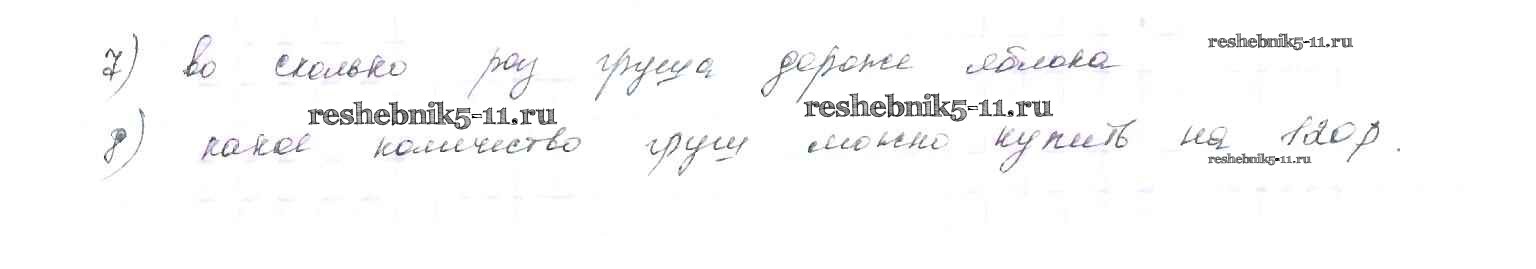 7) во сколько раз груша дороже яблока
reshebnik5-11.ru
reshebnik5-11.ru
reshebnik5-11.ru
8) какое количество груш можно купить на 120 р.
reshebnik5-11.ru